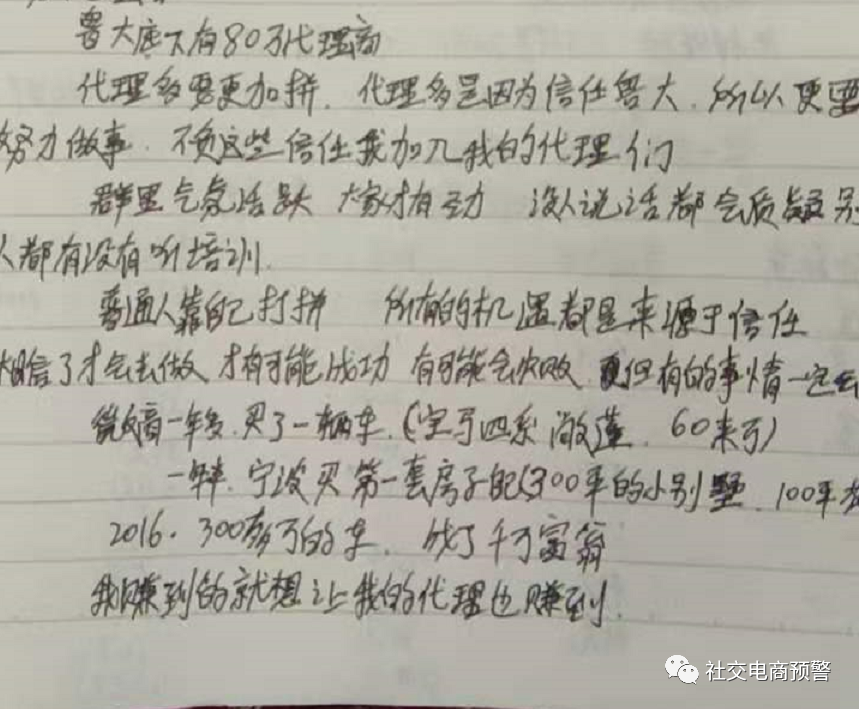 鲁大底下有80万代理商
代理多要更加拼. 代理多是因为信任鲁大. 所以更要
努力做事. 不负这些信任我加入我的代理们
群里气氛活跃 大家才有劲 没人说话都会质疑别
人都有没有听培训.
普通人靠自己打拼 所有的机遇都是来源于信任
相信了才会去做 才有可能成功 有可能会失败 但有的事情一定会
做微商一年多. 买了一辆车. (宝马四系 敞篷. 60来万)
一年半. 宁波买第一套房子 300平的小别墅. 100平
2016. 300多万的车. 成了千万富翁
我赚到的就想让我的代理也赚到.
社交电商预警